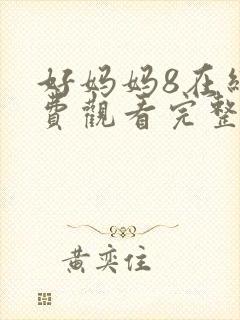 好妈妈8在线
費觀看完整
黄奕住